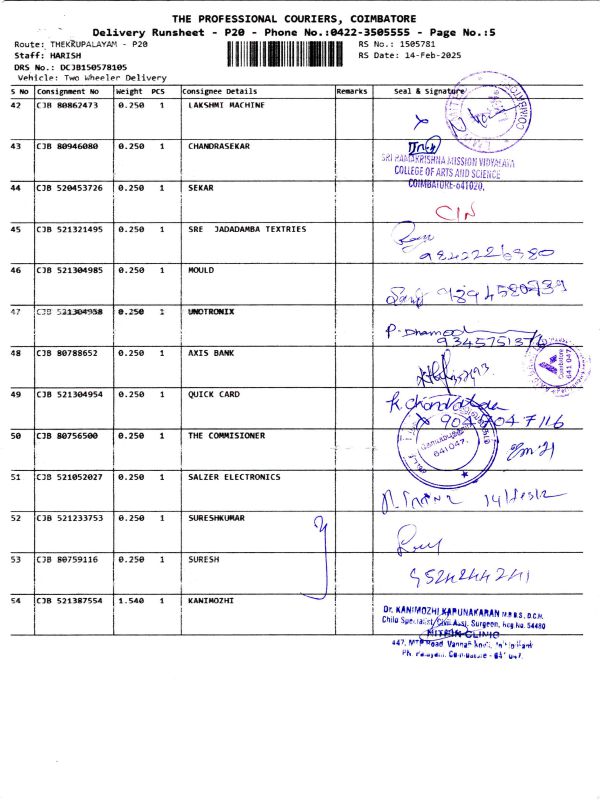 THE PROFESSIONAL COURIERS, COIMBATORE
Delivery Runsheet - P20 - Phone No.:0422-3505555 - Page No.:5
Route: THEKKUPALAYAM - P20 RS No.: 1505781
Staff: HARISH RS Date: 14-Feb-2025
DRS No.: DCJB150578105
Vehicle: Two Wheeler Delivery
S No Consignment No Weight PCS Consignee Details Remarks Seal & Signature
42 CJB 80862473 0.250 1 LAKSHMI MACHINE
43 CJB 80946080 0.250 1 CHANDRASEKAR
SRI RAMAKRISHNA MISSION VIDYALAYA
COLLEGE OF ARTS AND SCIENCE
COIMBATORE-641020.
44 CJB 520453726 0.250 1 SEKAR
CIN
45 CJB 521321495 0.250 1 SRE JADADAMBA TEXTRIES
9842226980
46 CJB 521304985 0.250 1 MOULD
9894580739
47 CJB 521304958 0.250 1 UNOTRONIX
P. Dhamod
9345751376
48 CJB 80788652 0.250 1 AXIS BANK
Coimbatore
641 047
49 CJB 521304954 0.250 1 QUICK CARD
9047047116
50 CJB 80756500 0.250 1 THE COMMISIONER
641047.
51 CJB 521052027 0.250 1 SALZER ELECTRONICS
52 CJB 521233753 0.250 1 SURESHKUMAR
53 CJB 80759116 0.250 1 SURESH
9524244241
54 CJB 521387554 1.540 1 KANIMOZHI
Dr. KANIMOZHI KARUNAKARAN M.B.B.S., D.C.H.
Child Specialist / Civil Asst. Surgeon, Reg.No. 54480
NITHIN CLINIC
447, MTP Road, Vannan Kovil,
Coimbatore - 641 047.